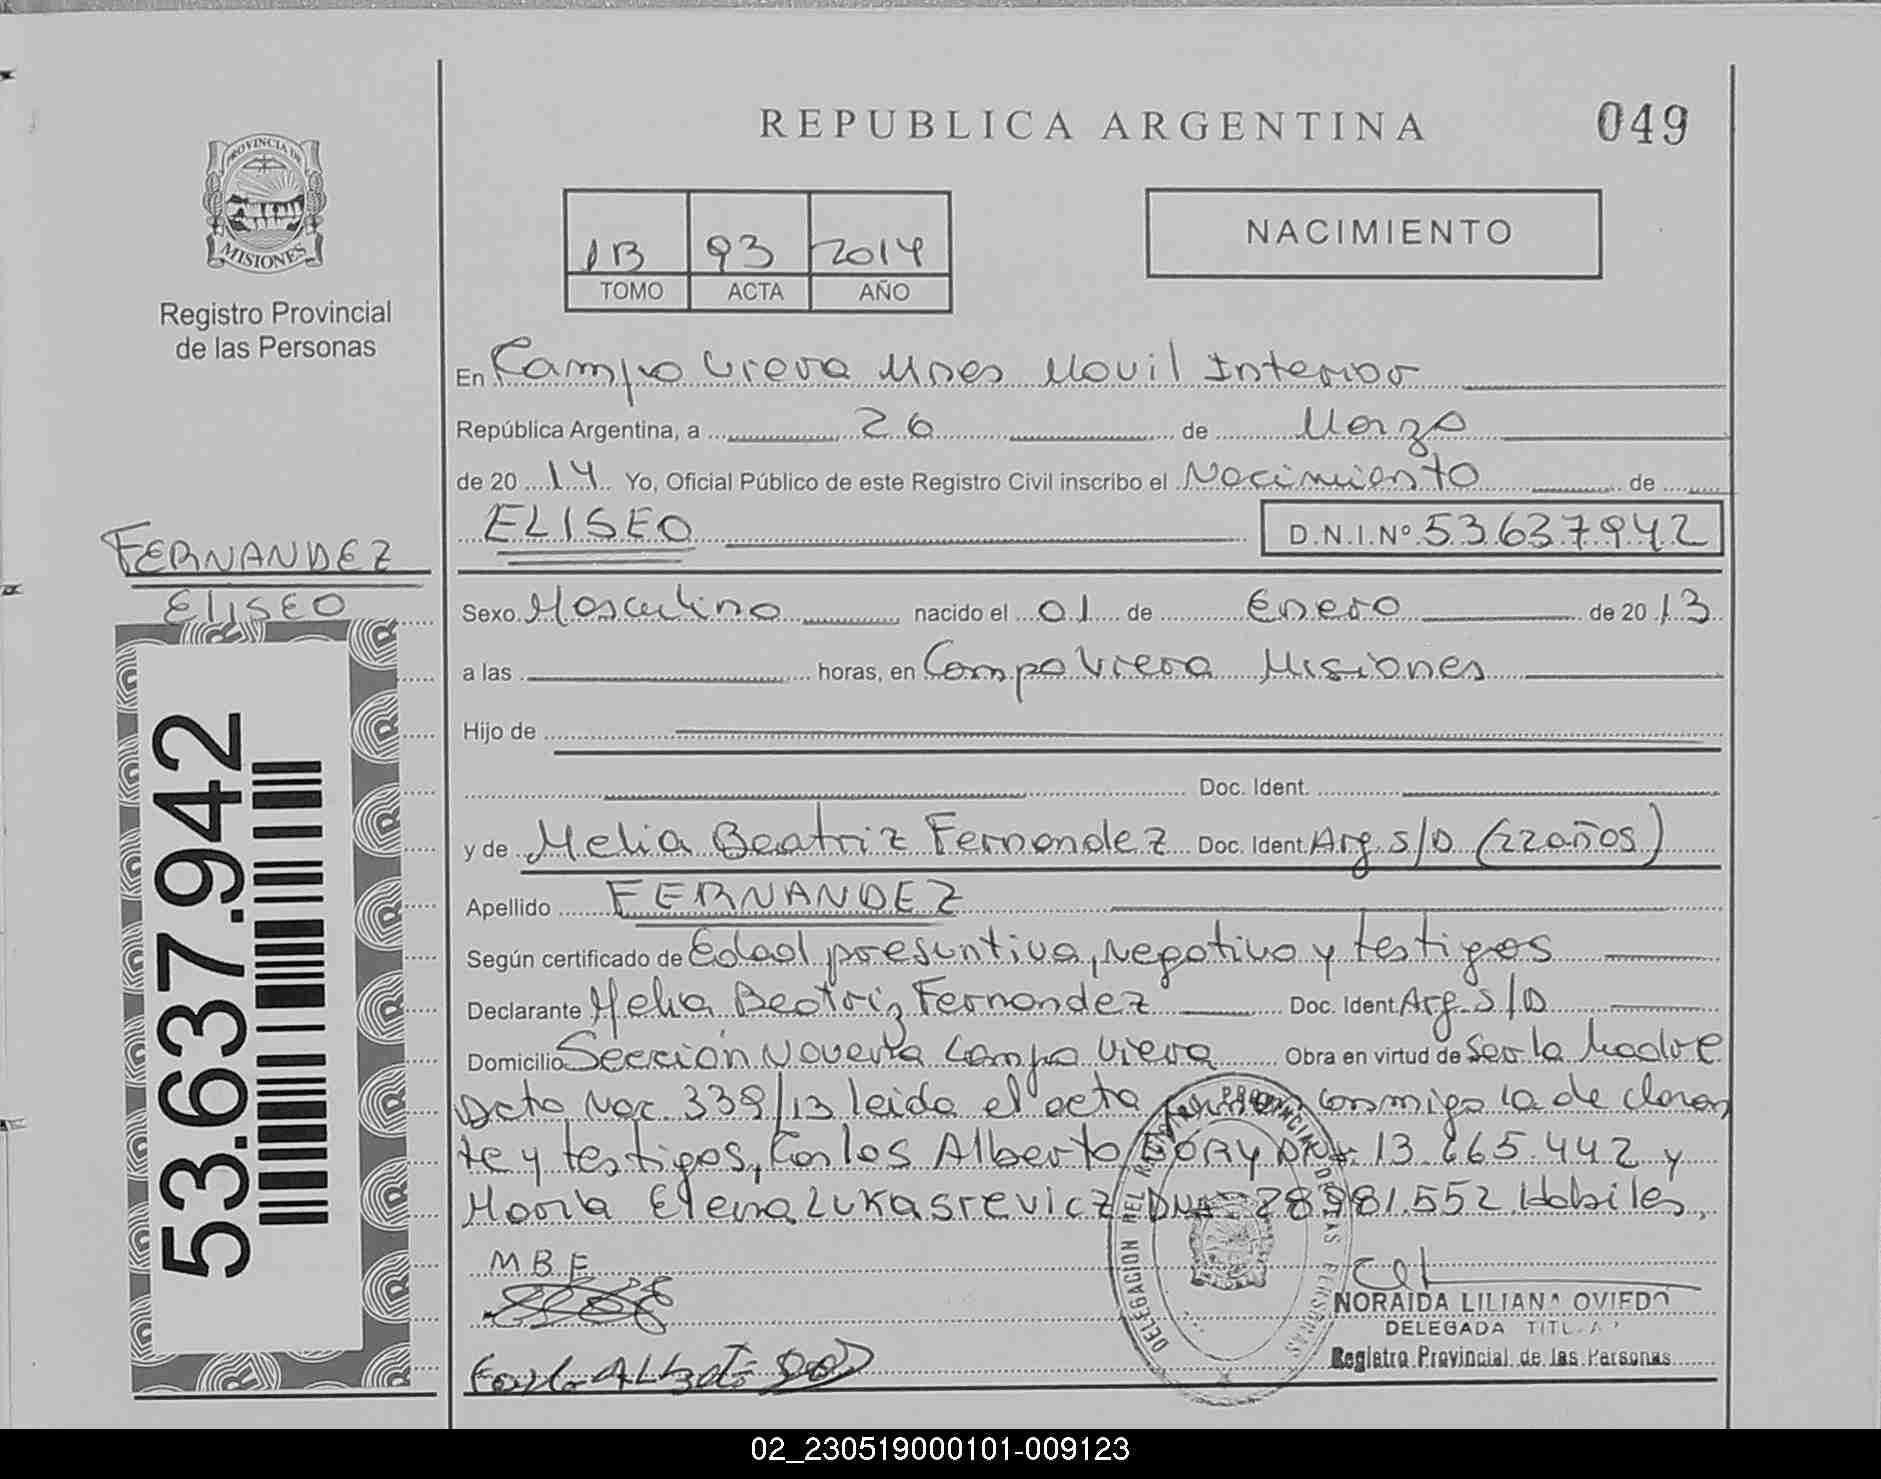 REPUBLICA ARGENTINA
049
PROVINCIA DE
MISIONES
Registro Provincial
de las Personas
1B 93 2014
TOMO ACTA AÑO
NACIMIENTO
En Campo Viera Mnes Movil Interior
República Argentina, a 26 de Marzo
de 2014 Yo, Oficial Público de este Registro Civil inscribo el Nacimiento de
ELISEO D.N.I.Nº 53637942
FERNANDEZ
ELISEO
Sexo Masculino nacido el 01 de Enero de 2013
a las horas, en Campo Viera Misiones
Hijo de
Doc. Ident.
y de Melia Beatriz Fernandez Doc. Ident. Arg. S/D (22 años)
Apellido FERNANDEZ
Según certificado de Edad presuntiva, negativo y testigos
Declarante Melia Beatriz Fernandez Doc. Ident Arg. S/D
Domicilio Sección Novena Campo Viera Obra en virtud de Ser la Madre
Dcto Nac. 339/13 leida el acta conmigo la declaran
te y testigos, Carlos Alberto DNI 13.665.442 y
Maria Elena Lukasievicz DNI 28.981.552 Habiles,
M B F
NORAIDA LILIANA OVIEDO
DELEGADA TITULAR
Registro Provincial de las Personas
DELEGACION DEL REGISTRO PROVINCIAL DE LAS PERSONAS
53.637.942
02_230519000101-009123